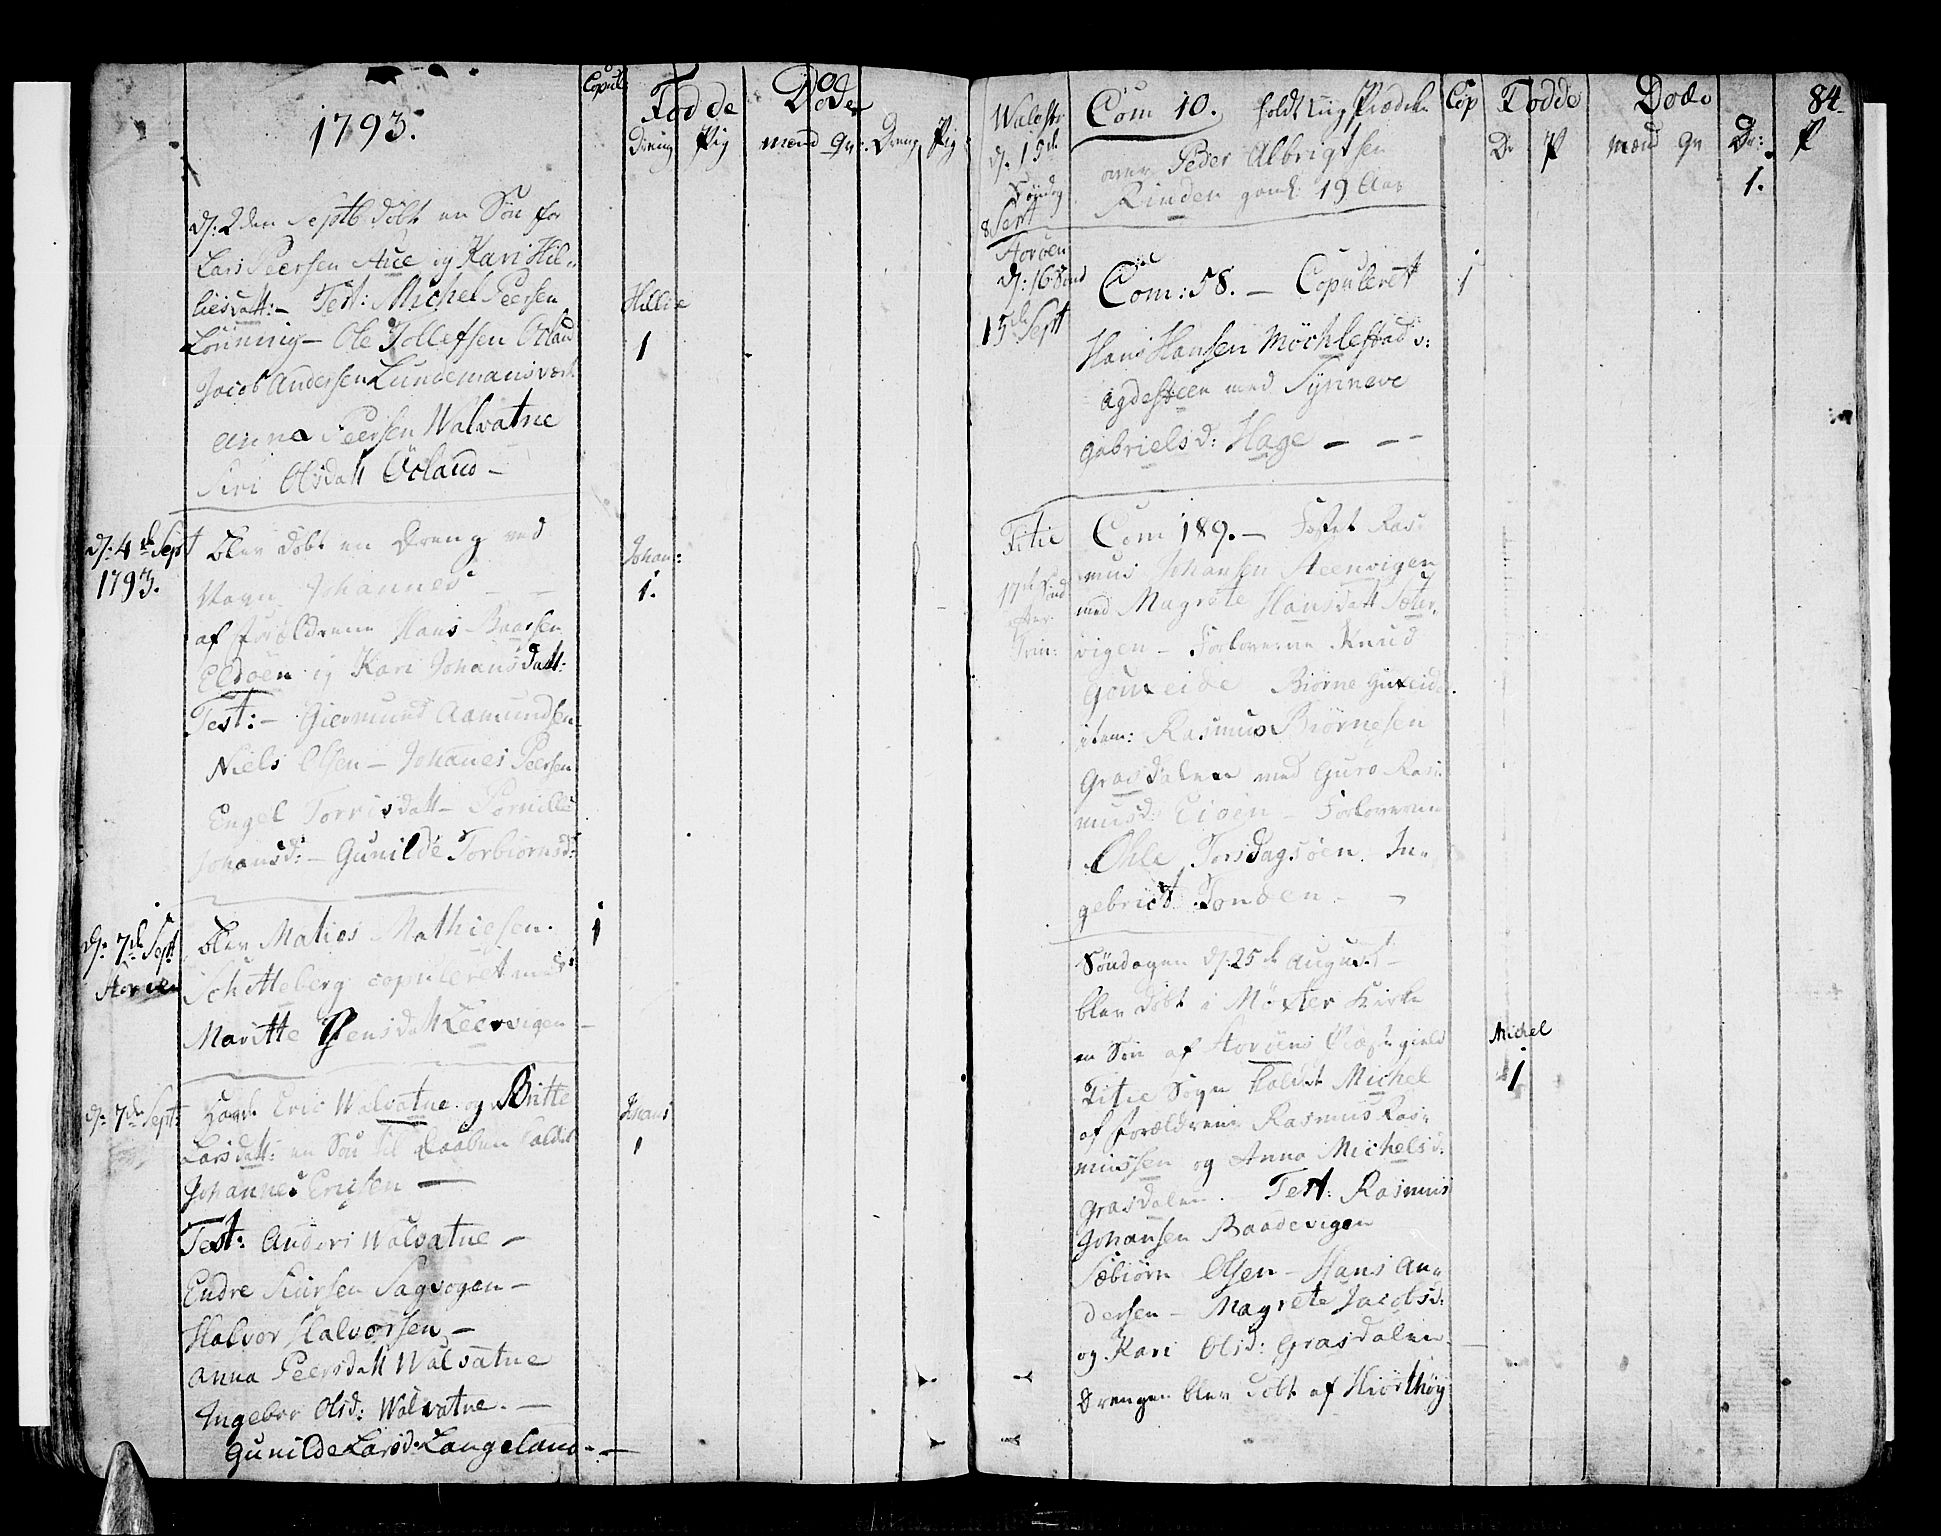 1793.
Copul:
Fødde
Døde
Dreng Pig
mænd Qv: Dreng Pig
d: 2den Septb døbt en Søn for
Lars Peersen Aue og Kari Hil-
liesdatt:- Test: Michel Peersen
Lønning - Ole Tollefsen Ørland
Jacob Andersen Lundemansværk
Anna Peersen Walvatne
Siri Olsdatt Ørland -
Hillie
1
d: 4de Sept
1793.
blev døbt en Dreng ved
Navn Johannes
af Forældrene Hans Baarsen
Eldøen og Kari Johansdatt:
Test:- Giermund Aamundsen
Niels Olsen - Johanes Peersen
Engel Torrisdatt - Pernille
Johansd:- Gunilde Torbiørnsd:
Johan:
1.
d: 7de Sept
Storøen
blev Maties Mathiesen
Schitteberg copuleret med
Maritte Jensdatt Leervigen -
1
d: 7de Sept:
Eric Walvatne og Britte
Larsdatt: en Søn til Daaben kaldet
Johannes Ericsen -
Test: Anders Walvatne -
Endre Siursen Sagvogen -
Halvor Halvorsen -
Anna Peersdatt Walvatne
Ingebor Olsd: Walvatne. -
Gunilde Larsd: Langeland -
Johans
1
84
Cop
Fødde
Døde
Dr P
mænd Qv Dr: P
d: 15de
Søndag
8 Sept
Com 10. holdt Liig Prædik
over Peder Albrigtsen
Rinden gaml: 19 Aar
1.
Storøen
d: 16 Sønd
15de Sept
Com: 58. - Copuleret
Hans Hansen Møchlestad v:
Agdesteen med Synneve
Gabrielsd: Hage - --
1
Fitie
17de Sønd
Trin:
Com 189. - Fæstet Ras-
mus Johansen Steenvigen
med Magrete Hansdatt Sæter-
vigen - Forloverne Knud
Gouxeide Biørne Guxeide.
item: Rasmus Biørnesen
Grasdalen med Guro Ras-
musd: Eiøen - Forloverne
Ohle Torsdagsøen. In-
gebrict Tonden -
Søndagen d: 25de August -
blev døbt i Møster Kirke
en Søn af Storøens Præstegield
Fitie Sogn kaldet Michel
af Forældrene Rasmus Ras-
mussen og Anna Michelsd:
Grasdalen. Test: Rasmus
Johansen Baadevigen
Sæbiørn Olsen - Hans An-
dersen - Magrete Jacobsd:
og Kari Olsd: Grasdalen
Drengen blev døbt af Hiorthøy
Michel
1